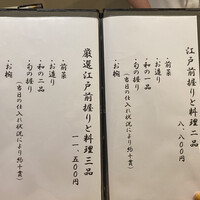 江戸前握りと料理二品
八、八〇〇円
・前菜
・お造り
・和の一品
・旬の握り
(当日の仕入れ状況により約十貫)
・お椀
厳選江戸前握りと料理三品
一一、五〇〇円
・前菜
・お造り
・和の二品
・旬の握り
(当日の仕入れ状況により約十貫)
・お椀